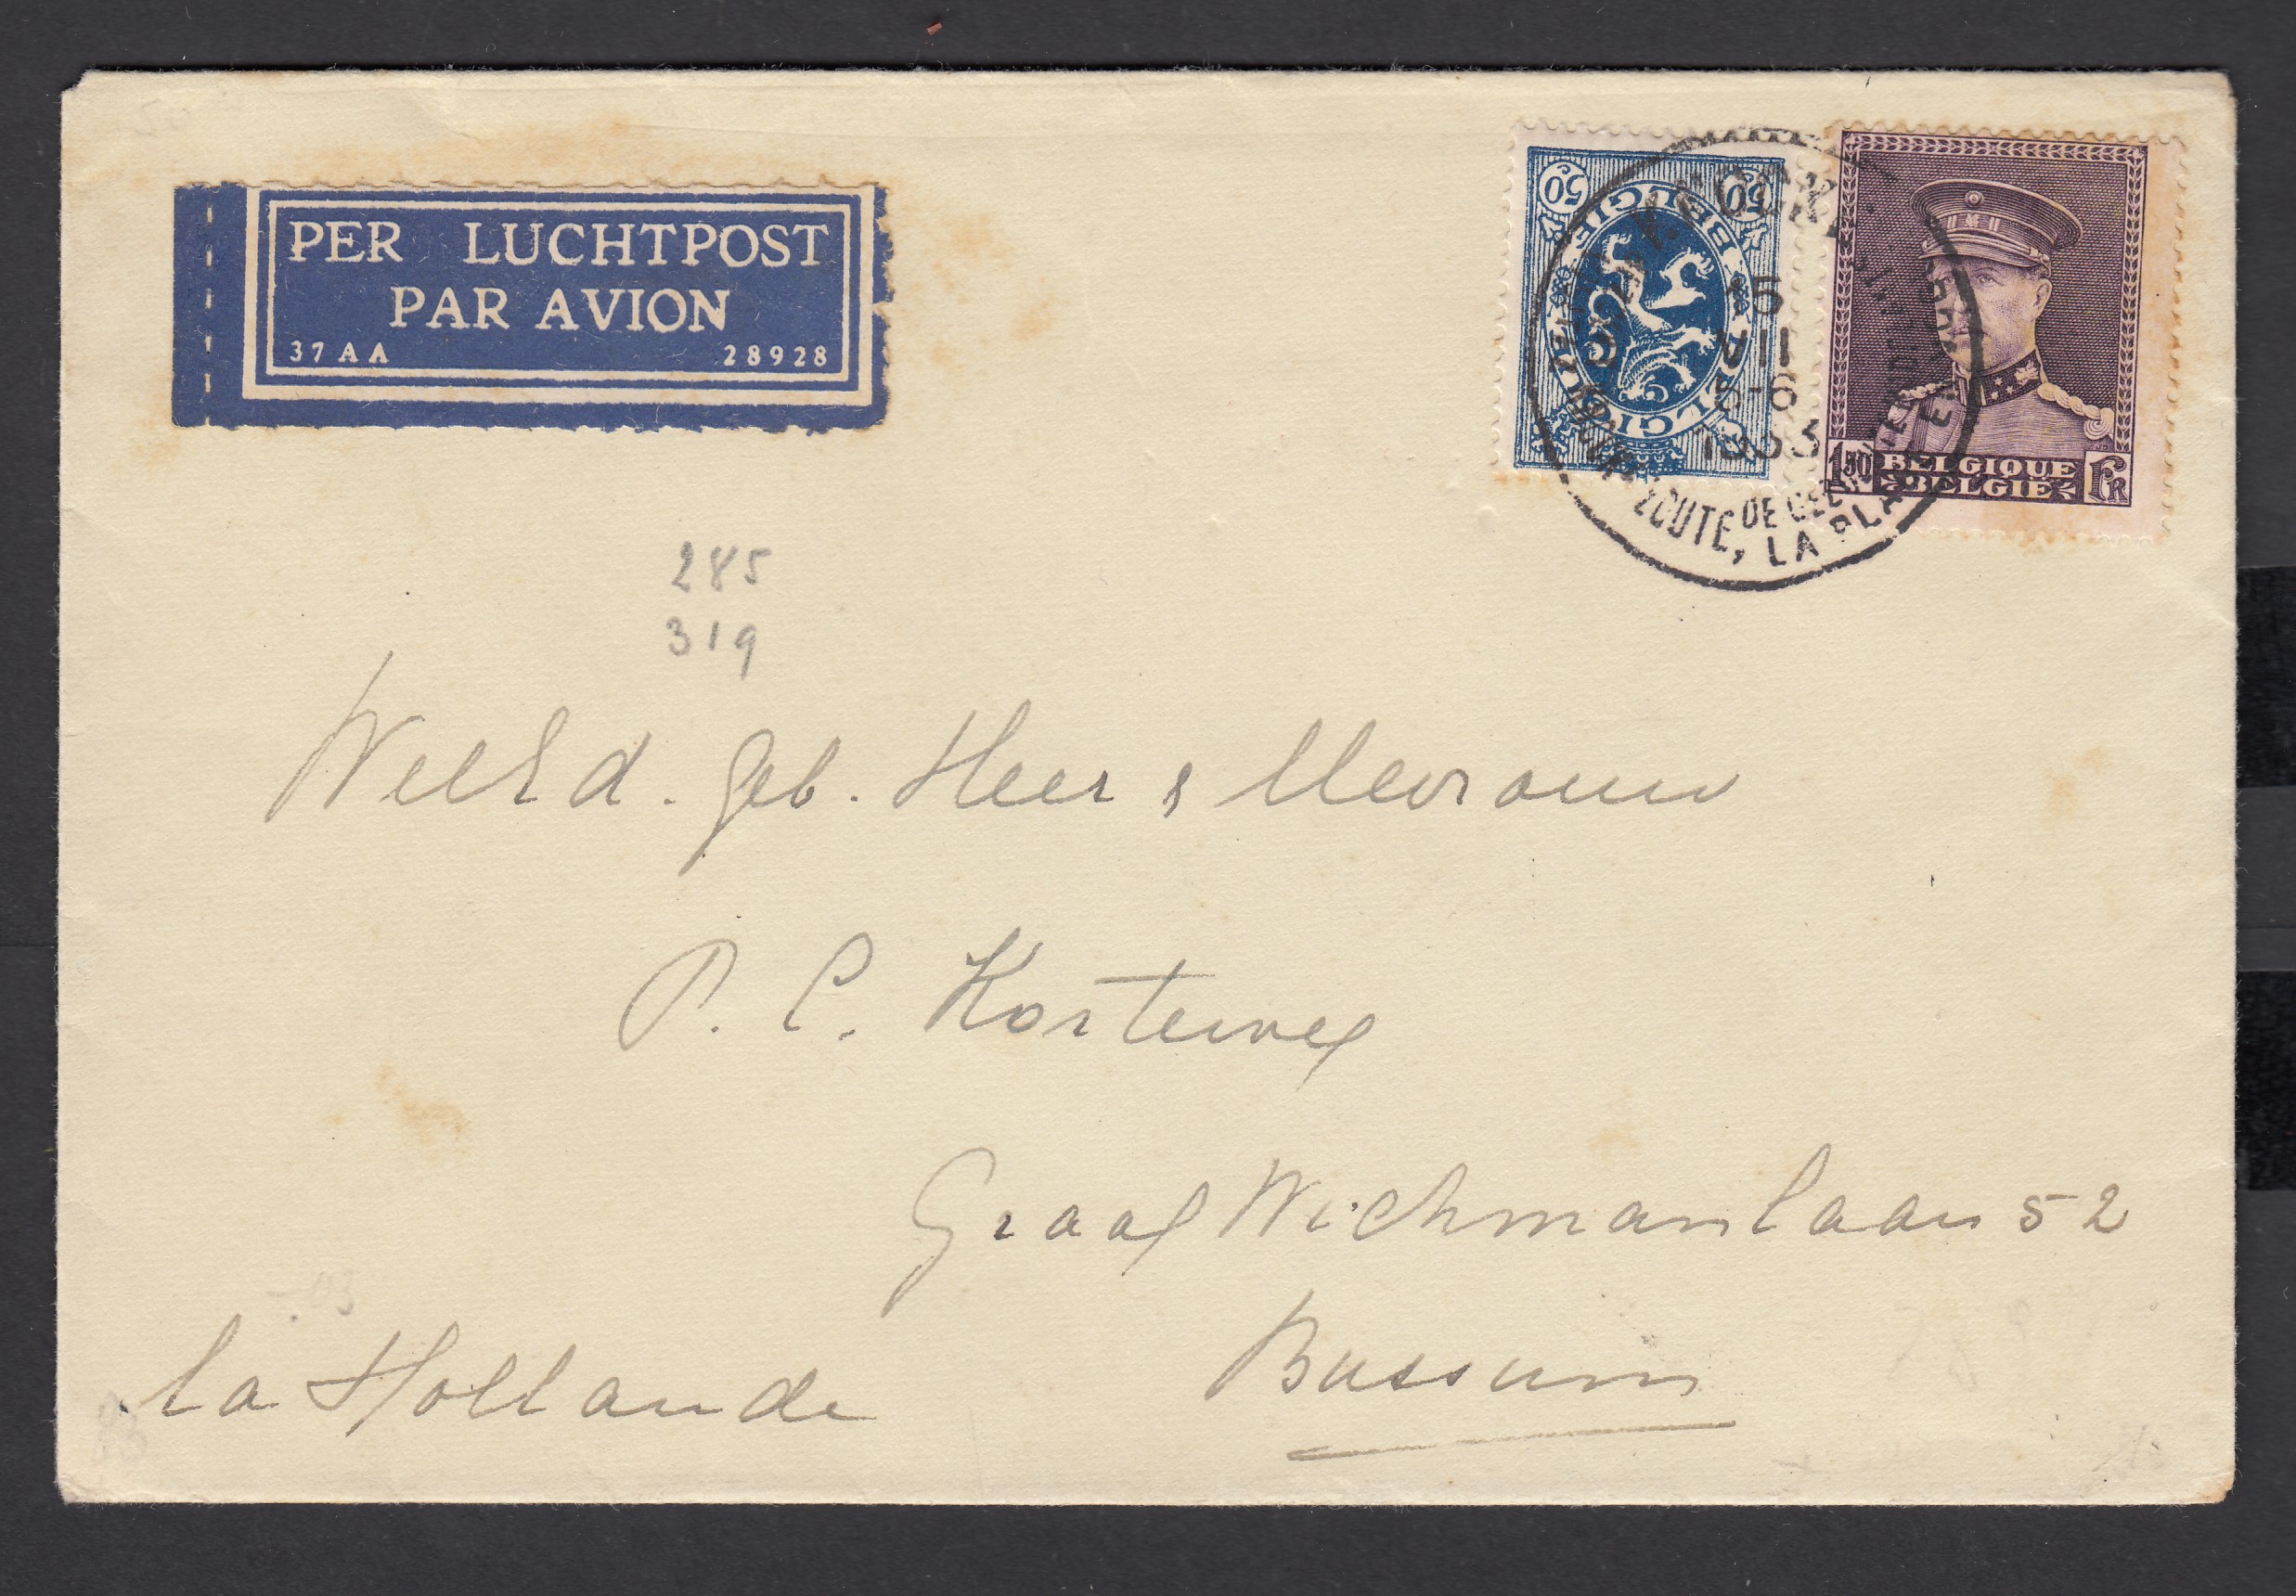 PER LUCHTPOST
PAR AVION
37 A A 28928
50 50
BELGIE BELGIQUE
15
VII
5-6
1933
ZOUTE, LA PLA
1.50 BELGIQUE FR
BELGIE
285
319
WelEd. geb. Heer & Mevrouw
P. C. Korteweg
Graaf Wichmanlaan 52
Bussum
la Hollande